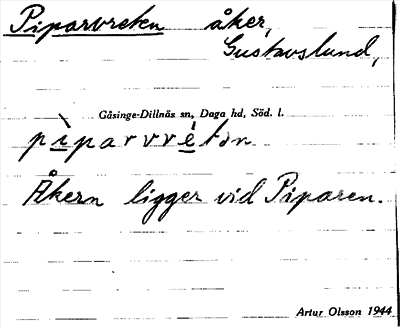 Piparvreten åker,
Gustavslund,
Gåsinge-Dillnäs sn, Daga hd, Söd. l.
pìparvrétən
Åkern ligger vid Piparen.
Artur Olsson 1944